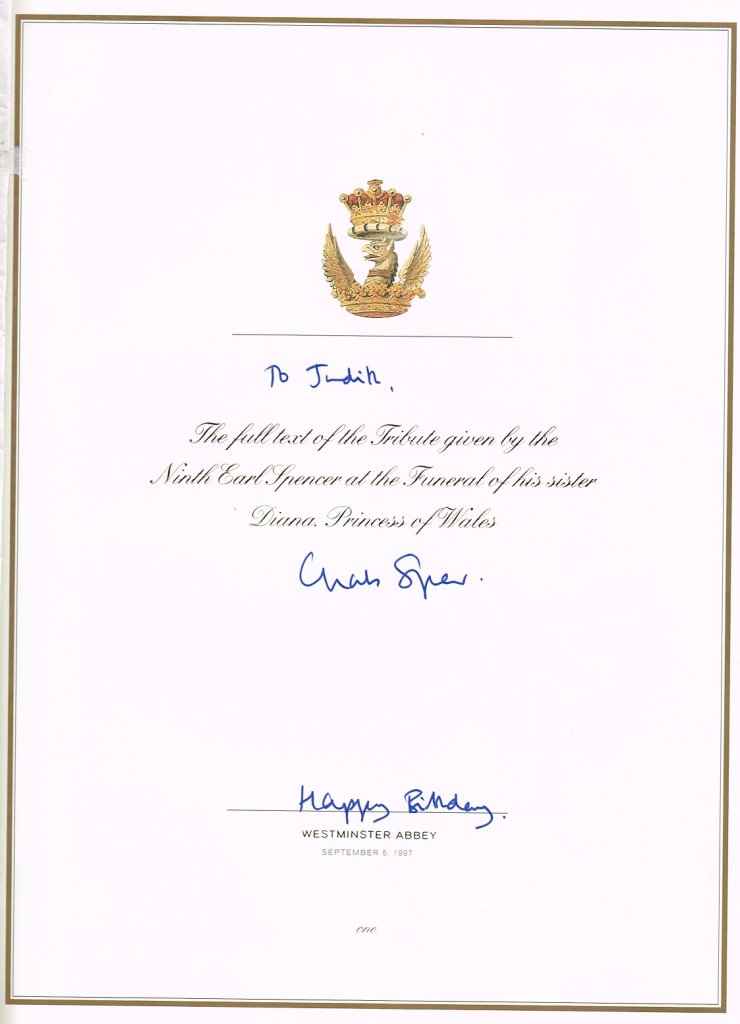 To Judith,
The full text of the Tribute given by the
Ninth Earl Spencer at the Funeral of his sister
Diana, Princess of Wales
Charles Spencer.
Happy Birthday.
WESTMINSTER ABBEY
SEPTEMBER 6, 1997
one